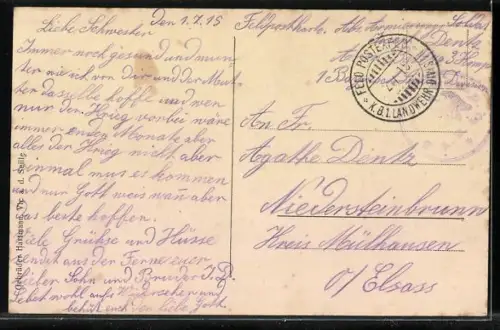 Den 1.7.15
Liebe Schwester
Immer noch gesund und mun
ter wie ich von Dir und der Mut
ter dasselbe hoffe und wen
nur der Krieg vorbei wäre
immer Monate aber
aller der Krieg nicht aber
einmal mus es kommen
und nur Gott weis wan aber
das beste hoffen.
Viele Grühse und Küsse
sendet aus der Ferne euer
lieber Sohn und Bruder J. D.
Lebet wohl aufs Wiedersehen und
behüt euch der liebe Gott.
Feldpostkarte. Abs. Armierungs Soldat
Dentz
FELD-POSTEXP.
K.B.1. LANDWEHR
An Fr.
Agathe Dentz
Niedersteinbrunn
Kreis Mülhausen
o/Elsass
Gebrüder Hartmann, Vic a. d. Seille